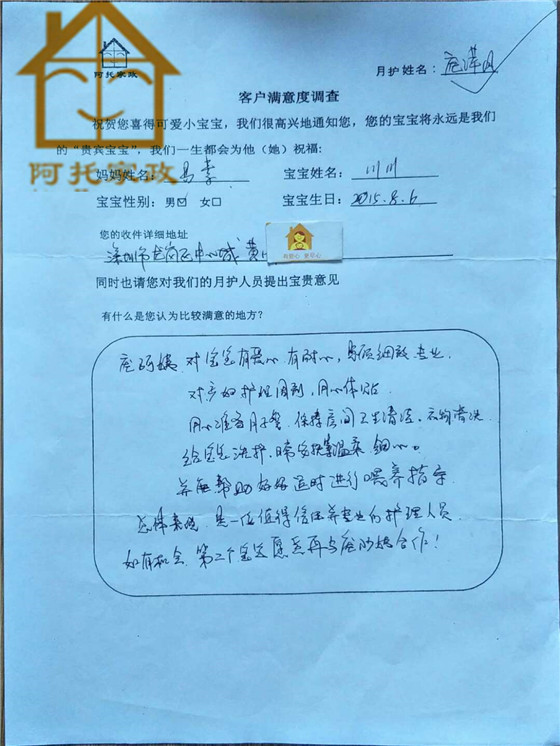 阿托家政
阿托家政
月护姓名：庞萍
客户满意度调查
祝贺您喜得可爱小宝宝，我们很高兴地通知您，您的宝宝将永远是我们
的“贵宾宝宝”，我们一生都会为他（她）祝福：
妈妈姓名：易李 宝宝姓名：川川
宝宝性别：男☑ 女□ 宝宝生日：2015.8.6
您的收件详细地址
深圳市龙岗区中心城 黄
有爱心 更用心
同时也请您对我们的月护人员提出宝贵意见
有什么是您认为比较满意的地方？
庞阿姨 对宝宝有爱心 有耐心，细致 专业。
对产妇护理周到，用心体贴
用心准备月子餐 保持房间卫生清洁，衣物清洗
给宝宝洗护、温柔 细心。
并能帮助 适时进行喂养指导
总体来说 是一位值得信任并专业的护理人员
如有机会 第二个宝宝愿意再与庞阿姨合作！